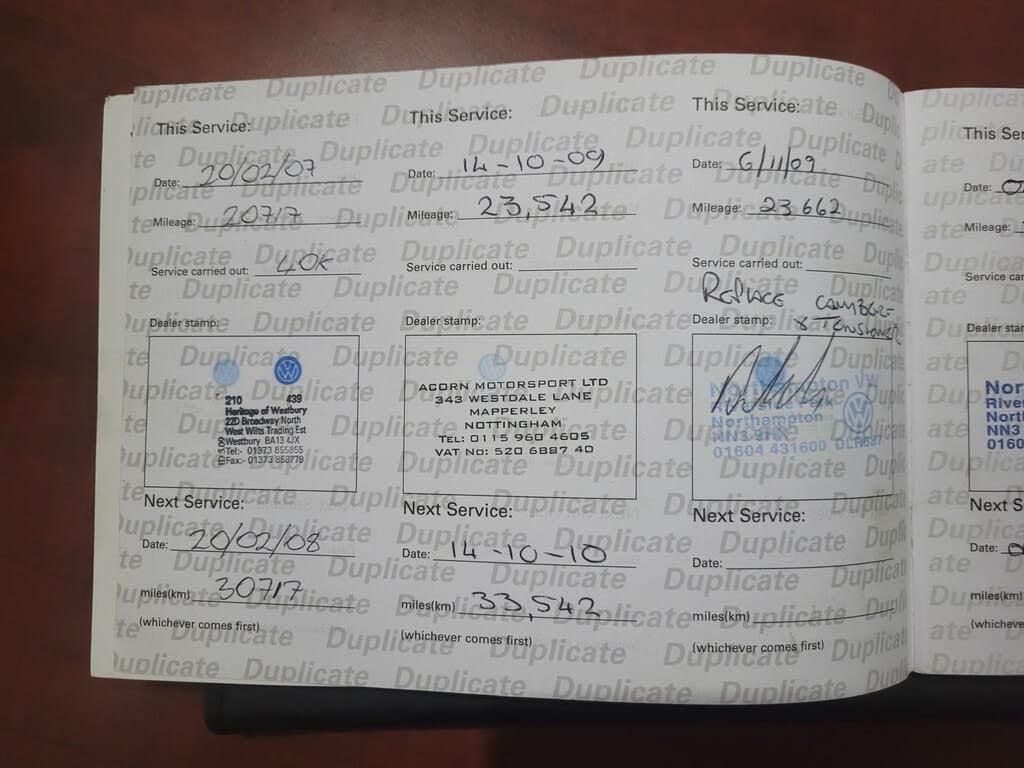 This Service:
Date: 20/02/07
Mileage: 20717
Service carried out: 40K
Dealer stamp:
210 439
Heritage of Westbury
22D Broadway North
West Wilts Trading Est
Westbury BA13 4JX
Tel:- 01373 855855
Fax:- 01373 858779
Next Service:
Date: 20/02/08
miles(km) 30717
(whichever comes first)
This Service:
Date: 14-10-09
Mileage: 23,542
Service carried out:
Dealer stamp:
ACORN MOTORSPORT LTD
343 WESTDALE LANE
MAPPERLEY
NOTTINGHAM
TEL: 0115 960 4605
VAT No: 520 6887 40
Next Service:
Date: 14-10-10
miles(km) 33,542
(whichever comes first)
This Service:
Date: 6/11/09
Mileage: 23 662
Service carried out:
REPLACE CAMBELT
& TENSIONER
Dealer stamp:
Northampton VW
Riverside Park
Northampton
NN3
01604 431600
Next Service:
Date:
miles(km)
(whichever comes first)
This Ser
Date:
Mileage:
Service car
Dealer stam
Nor
River
North
NN3
01604
Next S
Date:
miles(km)
(whicheve
Duplicate